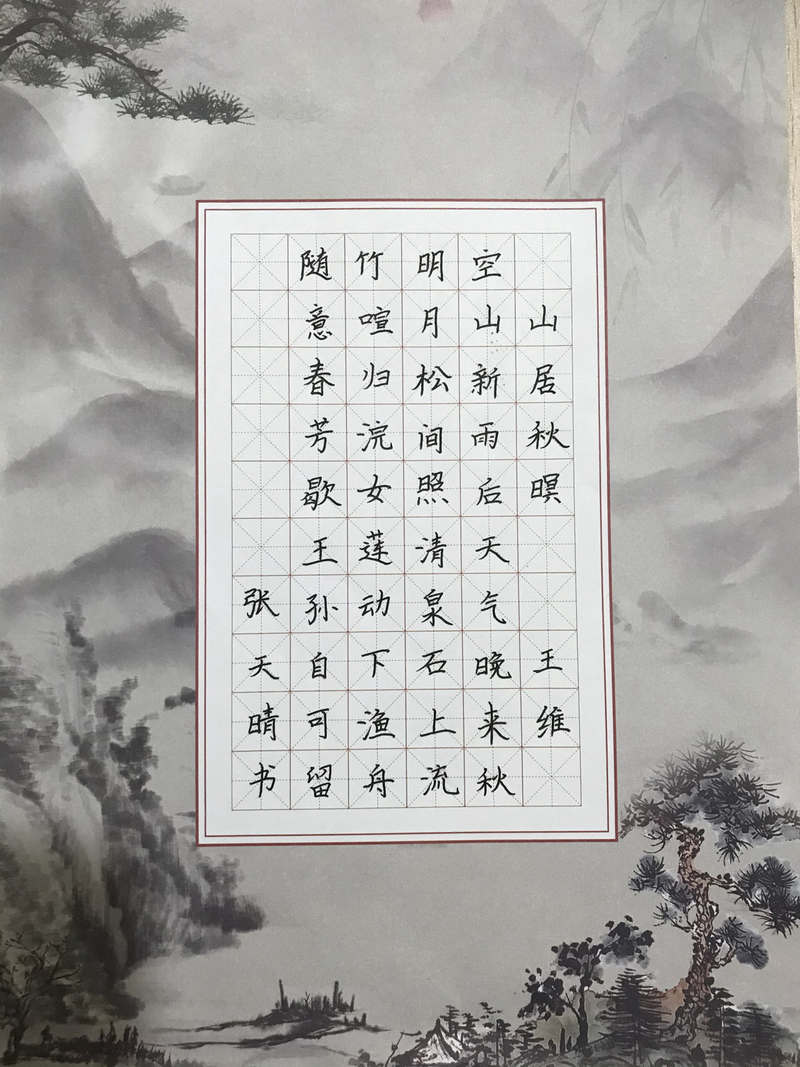 山居秋暝 王维
空山新雨后天气晚来秋
明月松间照清泉石上流
竹喧归浣女莲动下渔舟
随意春芳歇王孙自可留
张天晴书